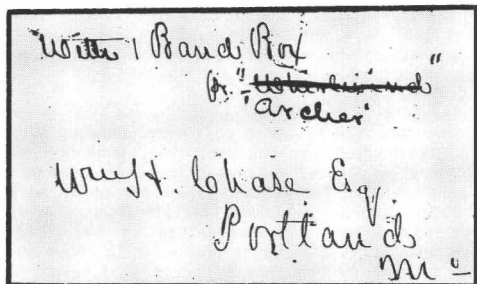 With 1 Band Box
pr. "Whirlwind"
"Archer"
Wm H. Chase Esq.
Portland
Me